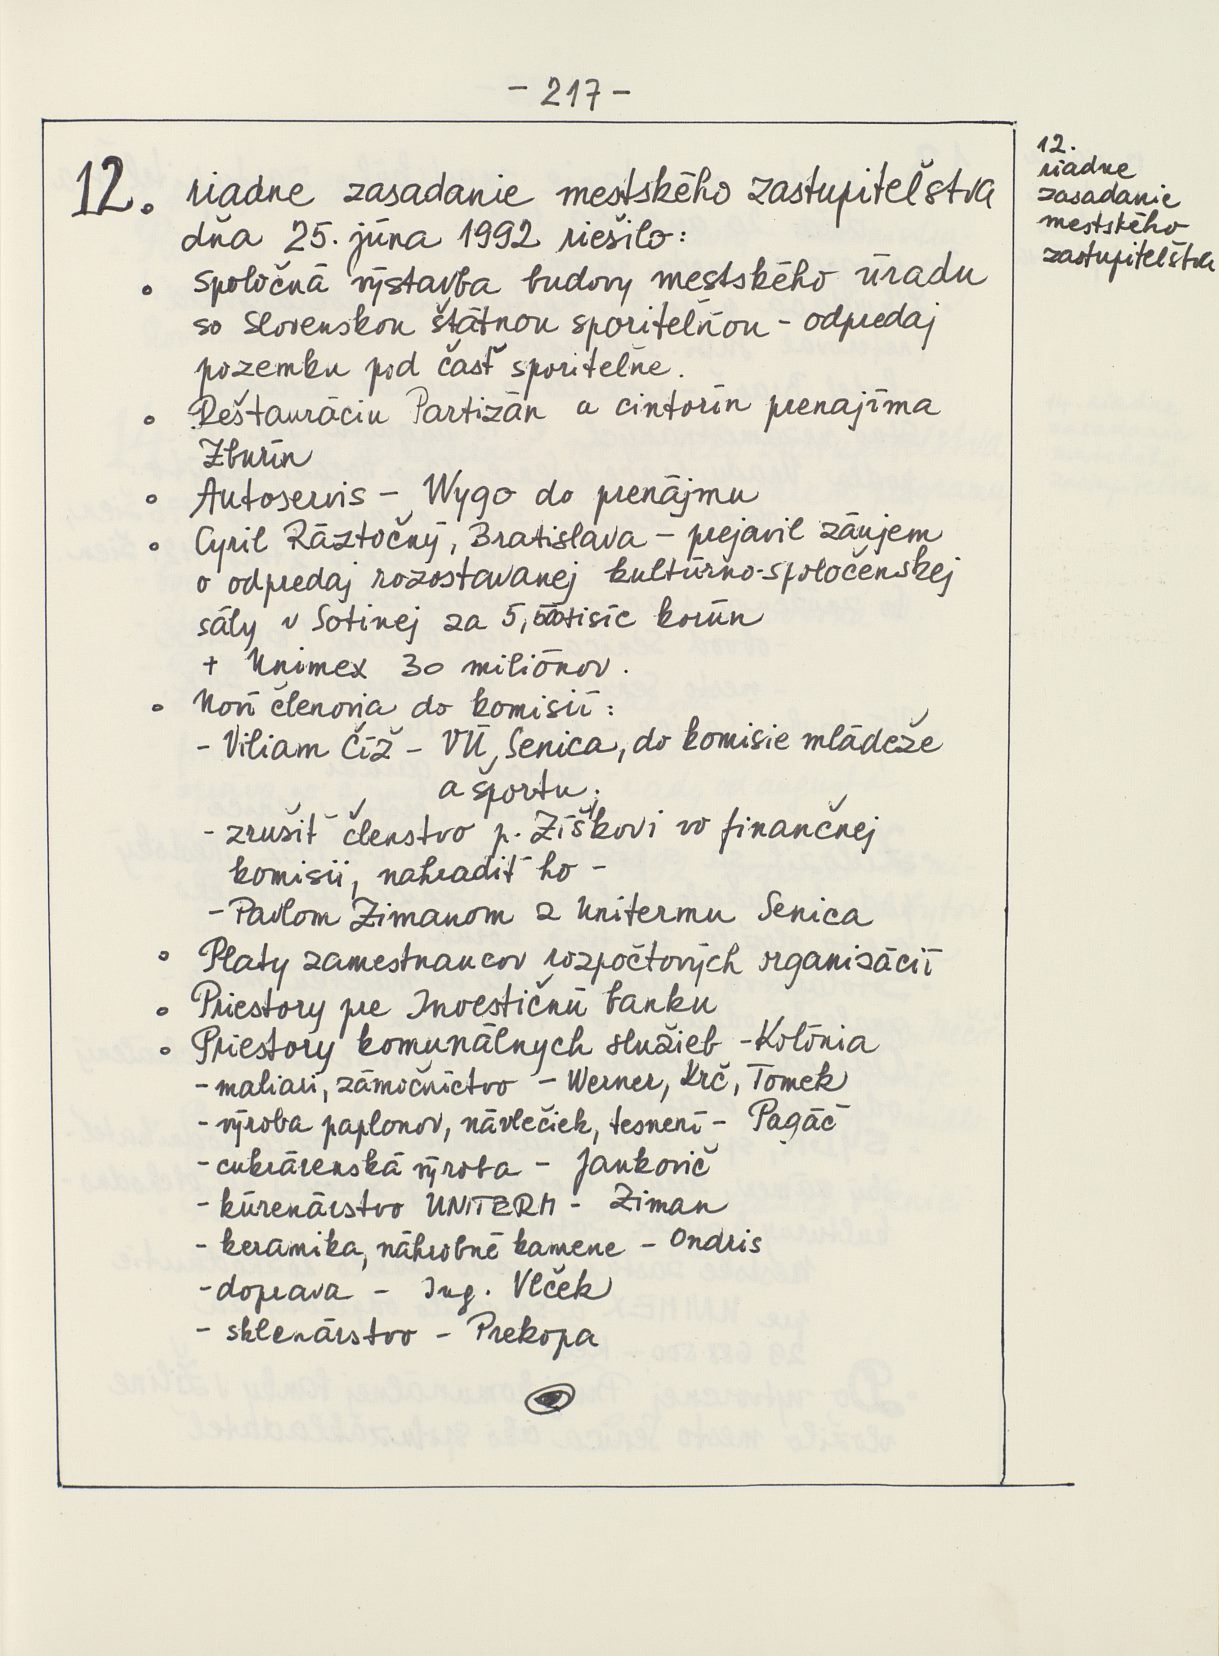 - 217 -
12. riadne zasadanie mestského zastupiteľstva
dňa 25. júna 1992 riešilo:
• Spoločná výstavba budovy mestského úradu
so Slovenskou štátnou sporiteľňou - odpredaj
pozemku pod časť sporiteľne.
• Reštauráciu Partizán a cintorín prenajíma
Zburín
• Autoservis - Wygo do prenájmu
• Cyril Ráztočný, Bratislava - prejavil záujem
o odpredaj rozostavanej kultúrno-spoločenskej
sály v Sotinej za 5, tisíc korún
+ Unimex 30 miliónov.
• Noví členovia do komisií:
- Viliam Číž - VÚ, Senica, do komisie mládeže
a športu.
- zrušiť členstvo p. Zíškovi vo finančnej
komisii, nahradiť ho -
- Pavlom Zimanom z Unitermu Senica
• Platy zamestnancov rozpočtových organizácií
• Priestory pre Investičnú banku
• Priestory komunálnych služieb - Kolónia
- maliari, zámočníctvo - Werner, Krč, Tomek
- výroba paplonov, návlečiek, tesnení - Pagáč
- cukrárenská výroba - Jankovič
- kúrenárstvo UNITERM - Ziman
- keramika, náhrobné kamene - Ondris
- doprava - Ing. Vlček
- sklenárstvo - Prekopa
12.
riadne
zasadanie
mestského
zastupiteľstva